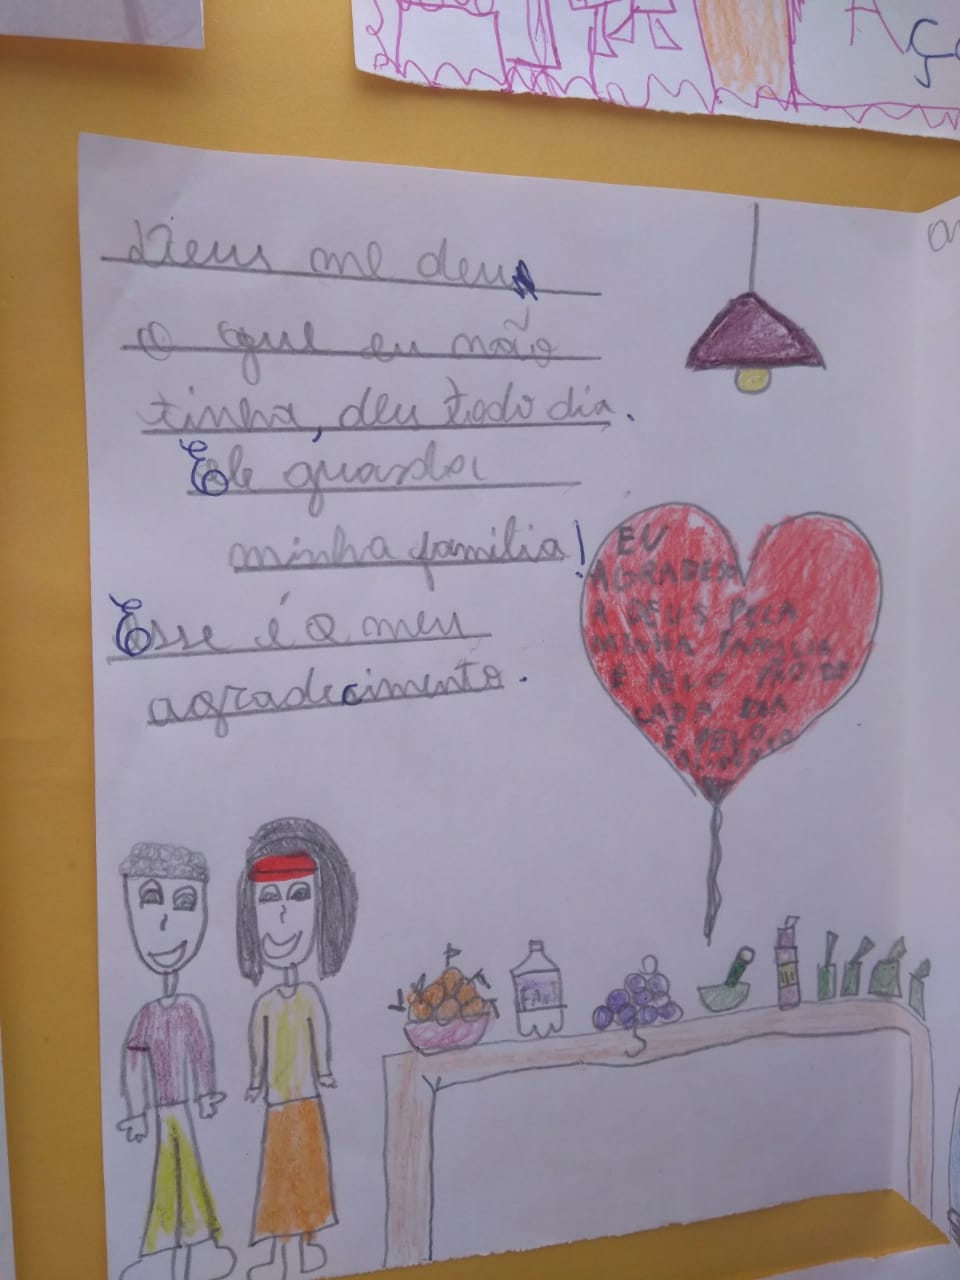 Deus me deu
o que eu não
tinha, deu todo dia.
Ele guarda
minha familia!
Esse é o meu
agradecimento.
EU
AGRADESA
A DEUS PELA
MINHA FAMILIA
E PELO PÃO DE
CADA DIA
E PELO
FAN
Aç